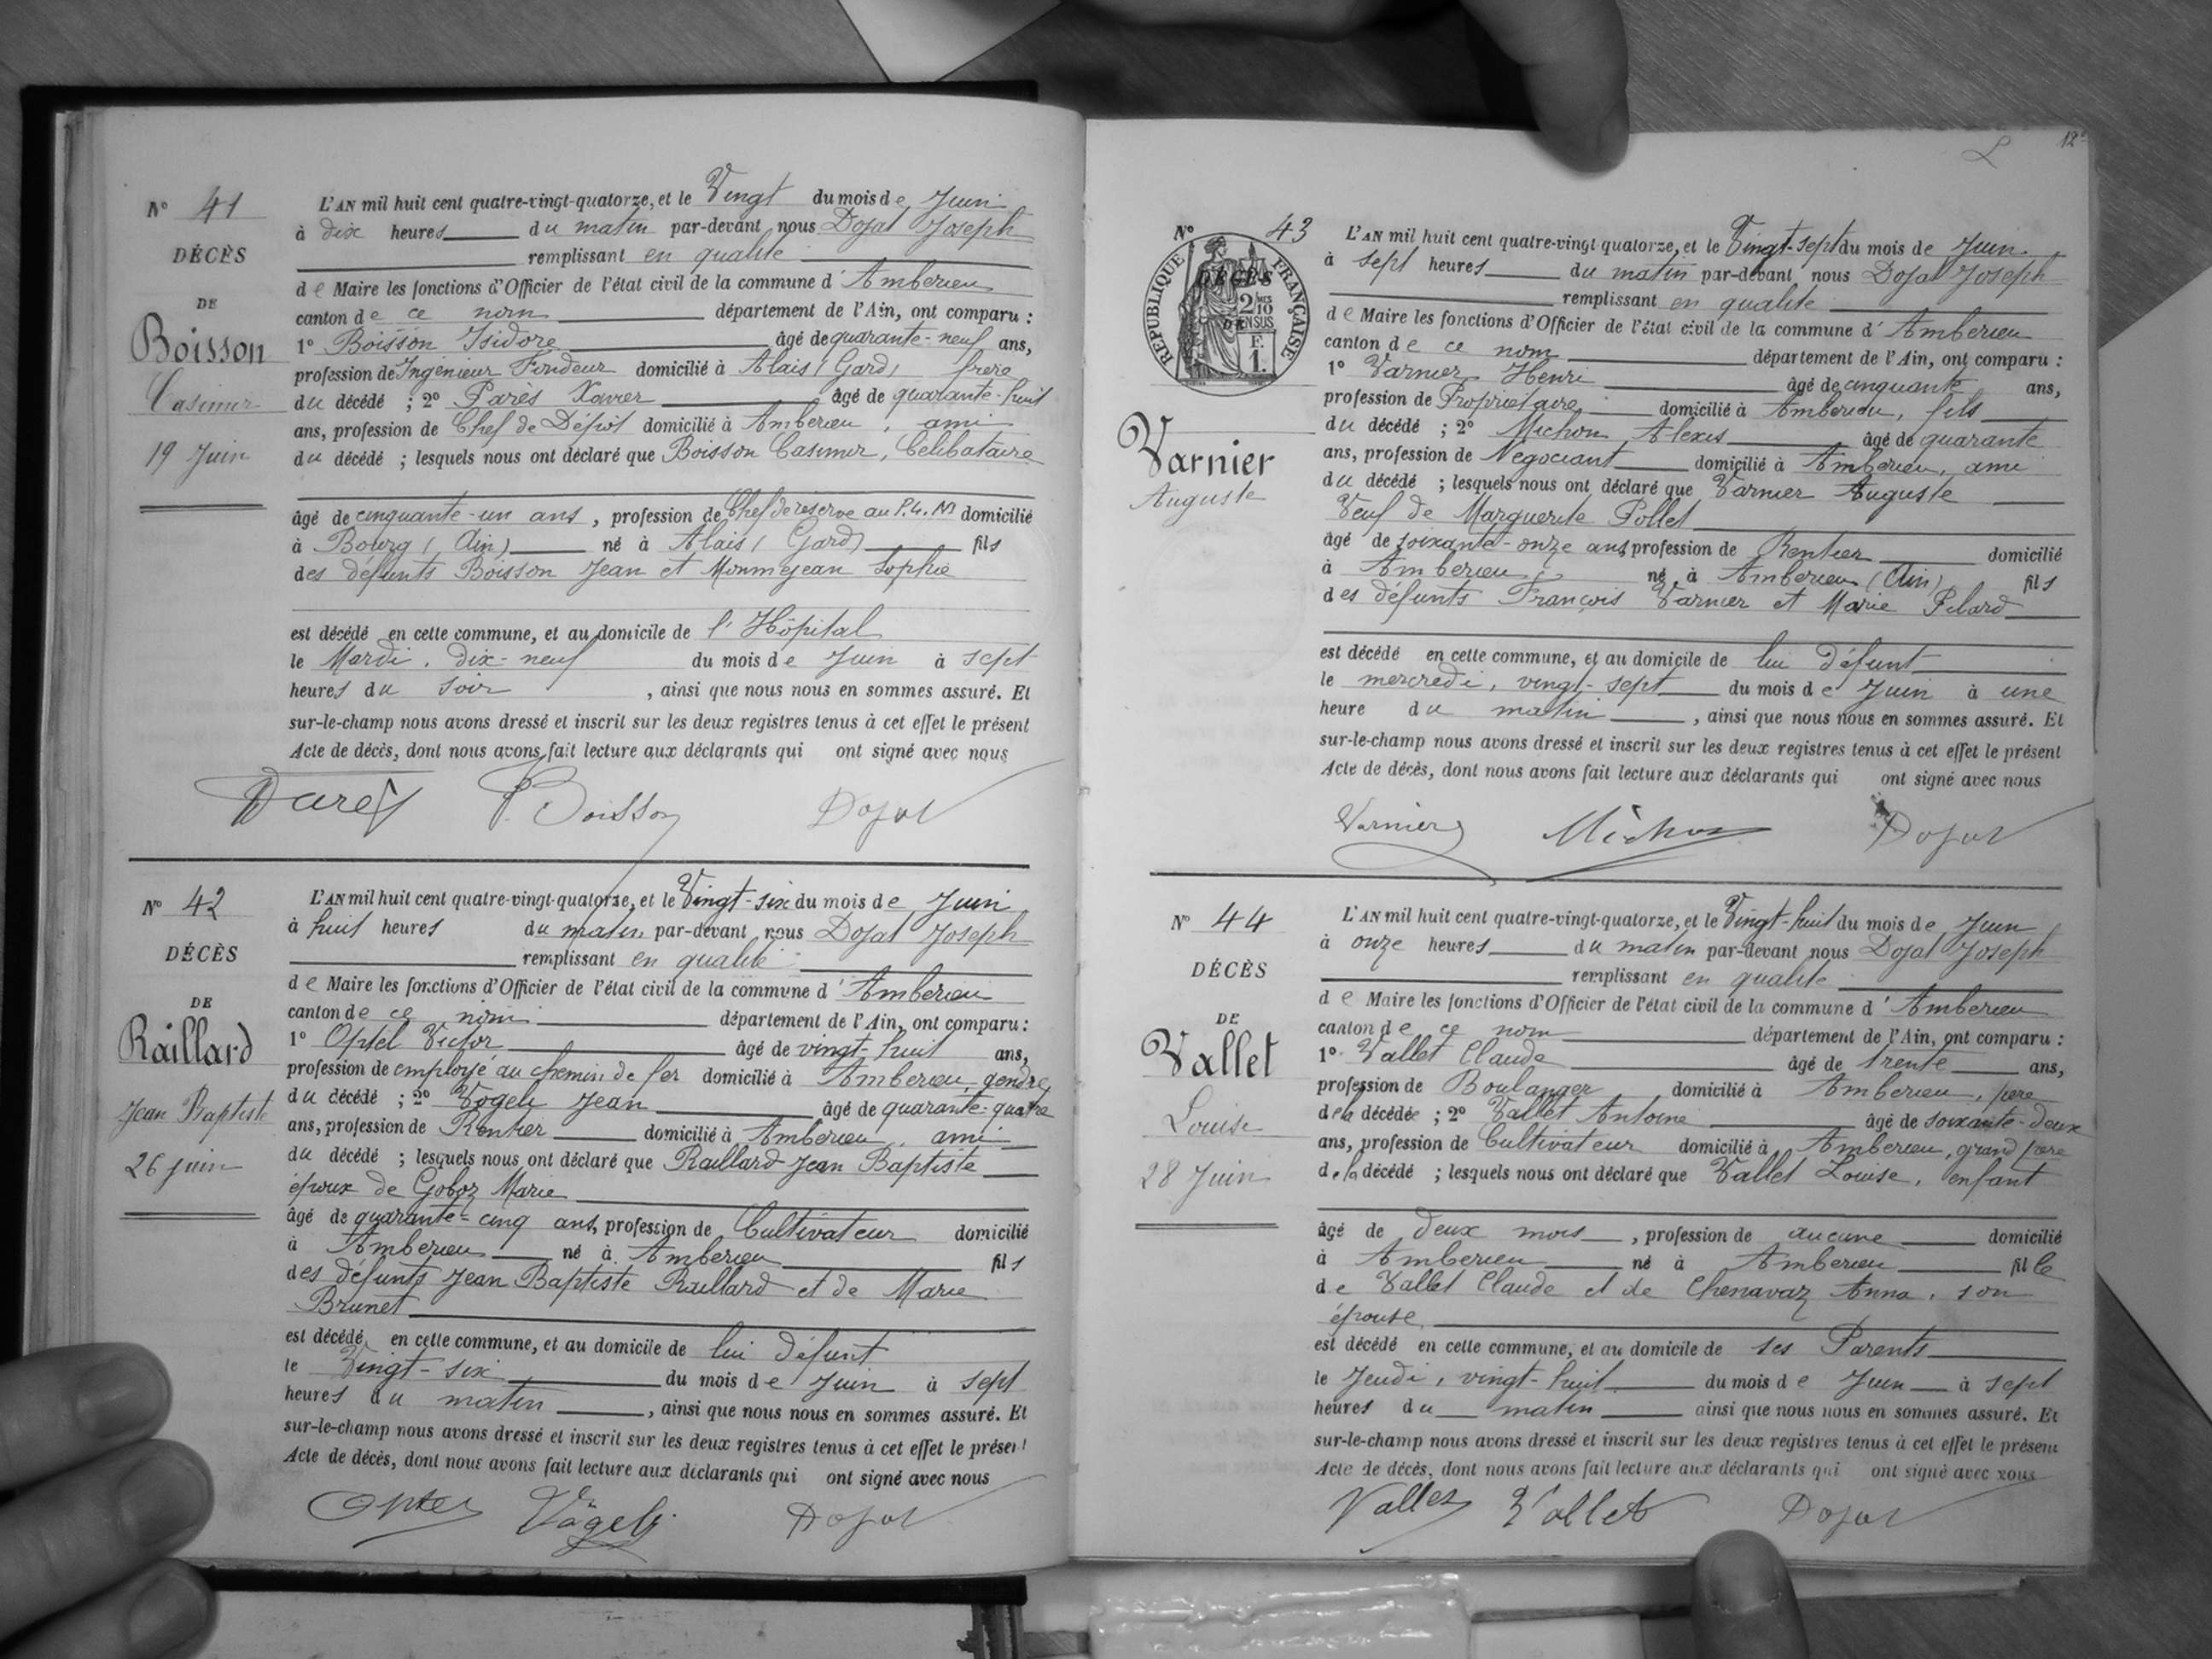 N° 41
DÉCÈS
DE
Boisson
Casimir
19 Juin
L'AN mil huit cent quatre-vingt-quatorze, et le Vingt du mois de Juin
à dix heures du matin par-devant nous Dojat Joseph
remplissant en qualité
de Maire les fonctions d'Officier de l'état civil de la commune d'Amberieu
canton de ce nom département de l'Ain, ont comparu :
1° Boisson Isidore âgé de quarante-neuf ans,
profession de Ingénieur Fondeur domicilié à Alais (Gard) frere
du décédé ; 2° Parès Xavier âgé de quarante-huit
ans, profession de Chef de Dépôt domicilié à Amberieu, ami
du décédé ; lesquels nous ont déclaré que Boisson Casimir, Célibataire
âgé de cinquante-un ans, profession de Chef de réserve au P.L.M domicilié
à Bourg (Ain) né à Alais (Gard) fils
des défunts Boisson Jean et Monmejean Sophie
est décédé en cette commune, et au domicile de l'Hôpital
le Mardi, dix-neuf du mois de Juin à sept
heures du soir, ainsi que nous nous en sommes assuré. Et
sur-le-champ nous avons dressé et inscrit sur les deux registres tenus à cet effet le présent
Acte de décès, dont nous avons fait lecture aux déclarants qui ont signé avec nous
Boisson Dojat
N° 42
DÉCÈS
DE
Raillard
Jean Baptiste
26 juin
L'AN mil huit cent quatre-vingt-quatorze, et le Vingt-six du mois de Juin
à huit heures du matin par-devant nous Dojat Joseph
remplissant en qualité
de Maire les fonctions d'Officier de l'état civil de la commune d'Amberieu
canton de ce nom département de l'Ain, ont comparu :
1° Optel Victor âgé de vingt-huit ans,
profession de employé au chemin de fer domicilié à Amberieu, gendre
du décédé ; 2° Vogeli Jean âgé de quarante-quatre
ans, profession de Rentier domicilié à Amberieu, ami
du décédé ; lesquels nous ont déclaré que Raillard Jean Baptiste
époux de Goboz Marie
âgé de quarante-cinq ans, profession de Cultivateur domicilié
à Amberieu né à Amberieu fils
des défunts Jean Baptiste Raillard et de Marie
Brunet
est décédé en cette commune, et au domicile de lui défunt
le Vingt-six du mois de Juin à sept
heures du matin, ainsi que nous nous en sommes assuré. Et
sur-le-champ nous avons dressé et inscrit sur les deux registres tenus à cet effet le présent
Acte de décès, dont nous avons fait lecture aux déclarants qui ont signé avec nous
Vögeli Dojat
N° 43
RÉPUBLIQUE FRANÇAISE
DÉCÈS
DE
2 MES
10
EN SUS
F.
1.
Varnier
Auguste
L'AN mil huit cent quatre-vingt quatorze, et le Vingt-sept du mois de Juin
à sept heures du matin par-devant nous Dojat Joseph
remplissant en qualité
de Maire les fonctions d'Officier de l'état civil de la commune d'Amberieu
canton de ce nom département de l'Ain, ont comparu :
1° Varnier Henri âgé de cinquante ans,
profession de Propriétaire domicilié à Amberieu, fils
du décédé ; 2° Michon Alexis âgé de quarante
ans, profession de Negociant domicilié à Amberieu, ami
du décédé ; lesquels nous ont déclaré que Varnier Auguste
Veuf de Marguerite Pollet
âgé de soixante-onze ans profession de Rentier domicilié
à Amberieu né à Amberieu (Ain) fils
des défunts François Varnier et Marie Pilard
est décédé en cette commune, et au domicile de lui défunt
le mercredi, vingt-sept du mois de Juin à une
heure du matin, ainsi que nous nous en sommes assuré. Et
sur-le-champ nous avons dressé et inscrit sur les deux registres tenus à cet effet le présent
Acte de décès, dont nous avons fait lecture aux déclarants qui ont signé avec nous
Varnier Michon Dojat
N° 44
DÉCÈS
DE
Vallet
Louise
28 Juin
L'AN mil huit cent quatre-vingt-quatorze, et le Vingt-huit du mois de Juin
à onze heures du matin par-devant nous Dojat Joseph
remplissant en qualité
de Maire les fonctions d'Officier de l'état civil de la commune d'Amberieu
canton de ce nom département de l'Ain, ont comparu :
1° Vallet Claude âgé de trente ans,
profession de Boulanger domicilié à Amberieu, père
de la décédée ; 2° Vallet Antoine âgé de soixante-deux
ans, profession de Cultivateur domicilié à Amberieu, grand père
de la décédé ; lesquels nous ont déclaré que Vallet Louise, enfant
âgé de deux mois, profession de aucune domicilié
à Amberieu né à Amberieu fille
de Vallet Claude et de Chenavaz Anna, son
épouse
est décédé en cette commune, et au domicile de ses Parents
le Jeudi, vingt-huit du mois de Juin à sept
heures du matin ainsi que nous nous en sommes assuré. Et
sur-le-champ nous avons dressé et inscrit sur les deux registres tenus à cet effet le présent
Acte de décès, dont nous avons fait lecture aux déclarants qui ont signé avec nous
Vallet Vallet Dojat